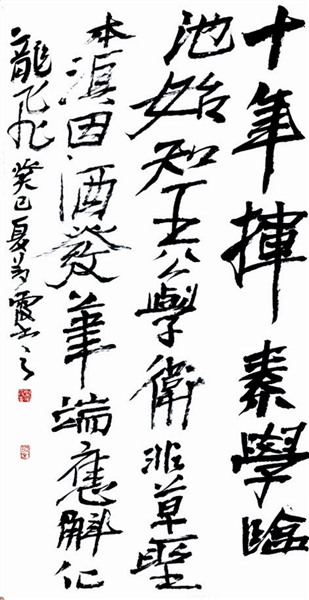 十年揮素學臨
池始知王公學衛非草聖
本湏因酒發筆端應解化
龍飛 癸巳夏